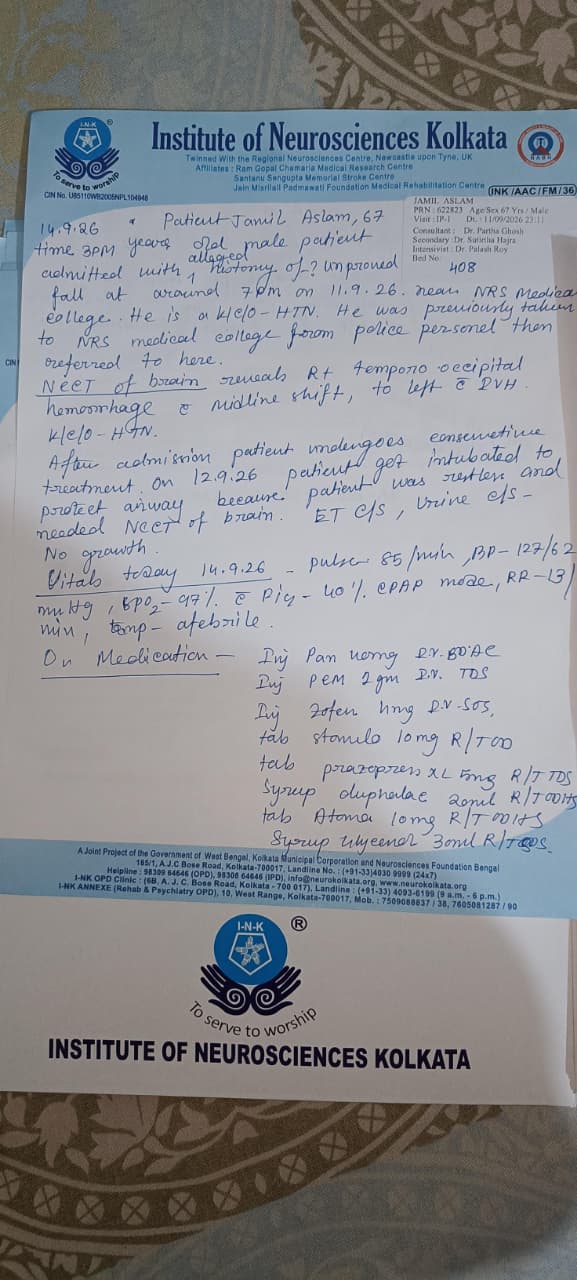 I-N-K
®
To serve to worship
Institute of Neurosciences Kolkata
Twinned With the Regional Neurosciences Centre, Newcastle upon Tyne, UK
Affiliates : Ram Gopal Chamaria Medical Research Centre
Santanu Sengupta Memorial Stroke Centre
Jain Misrilall Padmawati Foundation Medical Rehabilitation Centre
CIN No. U85110WB2005NPL104948
INK/AAC/FM/36
JAMIL ASLAM
PRN : 622823 Age/Sex 67 Yrs / Male
Visit : IP-1 Dt. : 11/09/2026 23:11
Consultant : Dr. Partha Ghosh
Secondary : Dr. Satirtha Hajra
Intensivist : Dr. Palash Roy
Bed No:
408
14.9.26 Patient Jamil Aslam, 67
time 3PM years old male patient
admitted with alleged history of ? unproved
fall at around 7pm on 11.9.26. near NRS Medical
college. He is a K/C/O - HTN. He was previously taken
to NRS medical college from police personel then
referred to here.
NCCT of brain reveals Rt temporo occipital
hemorrhage c̄ midline shift, to left c̄ IVH.
K/C/O - HTN.
After admission patient undergoes consevetive
treatment. On 12.9.26 patient get intubated to
protect airway because patient was restless and
needed NCCT of brain. ET C/S, Urine C/S -
No growth.
Vitals today 14.9.26 - pulse 85/min, BP - 127/62
mmHg, SPO2 - 97% c̄ 40% CPAP mode, RR - 13/
min, temp - afebrile.
On Medication - Inj Pan 40mg I.V. BDAC
Inj PEM 2gm I.V. TDS
Inj Zofer 4mg I.V - SOS,
tab Stamlo 10mg R/T OD
tab prazopress XL 5mg R/T TDS
Syrup duphalac 20ml R/T ODHS
tab Atorva 10mg R/T ODHS
Syrup Glycerol 30ml R/T
A Joint Project of the Government of West Bengal, Kolkata Municipal Corporation and Neurosciences Foundation Bengal
185/1, A.J.C Bose Road, Kolkata-700017, Landline No. : (+91-33)4030 9999 (24x7)
Helpline : 98309 64646 (OPD), 98306 64646 (IPD), info@neurokolkata.org, www.neurokolkata.org
I-NK OPD Clinic : (6B, A. J. C. Bose Road, Kolkata - 700 017), Landline : (+91-33) 4093-6199 (9 a.m. - 6 p.m.)
I-NK ANNEXE (Rehab & Psychiatry OPD), 10, West Range, Kolkata-700017, Mob. : 7509088837 / 38, 7605081287 / 90
I-N-K
®
To serve to worship
INSTITUTE OF NEUROSCIENCES KOLKATA